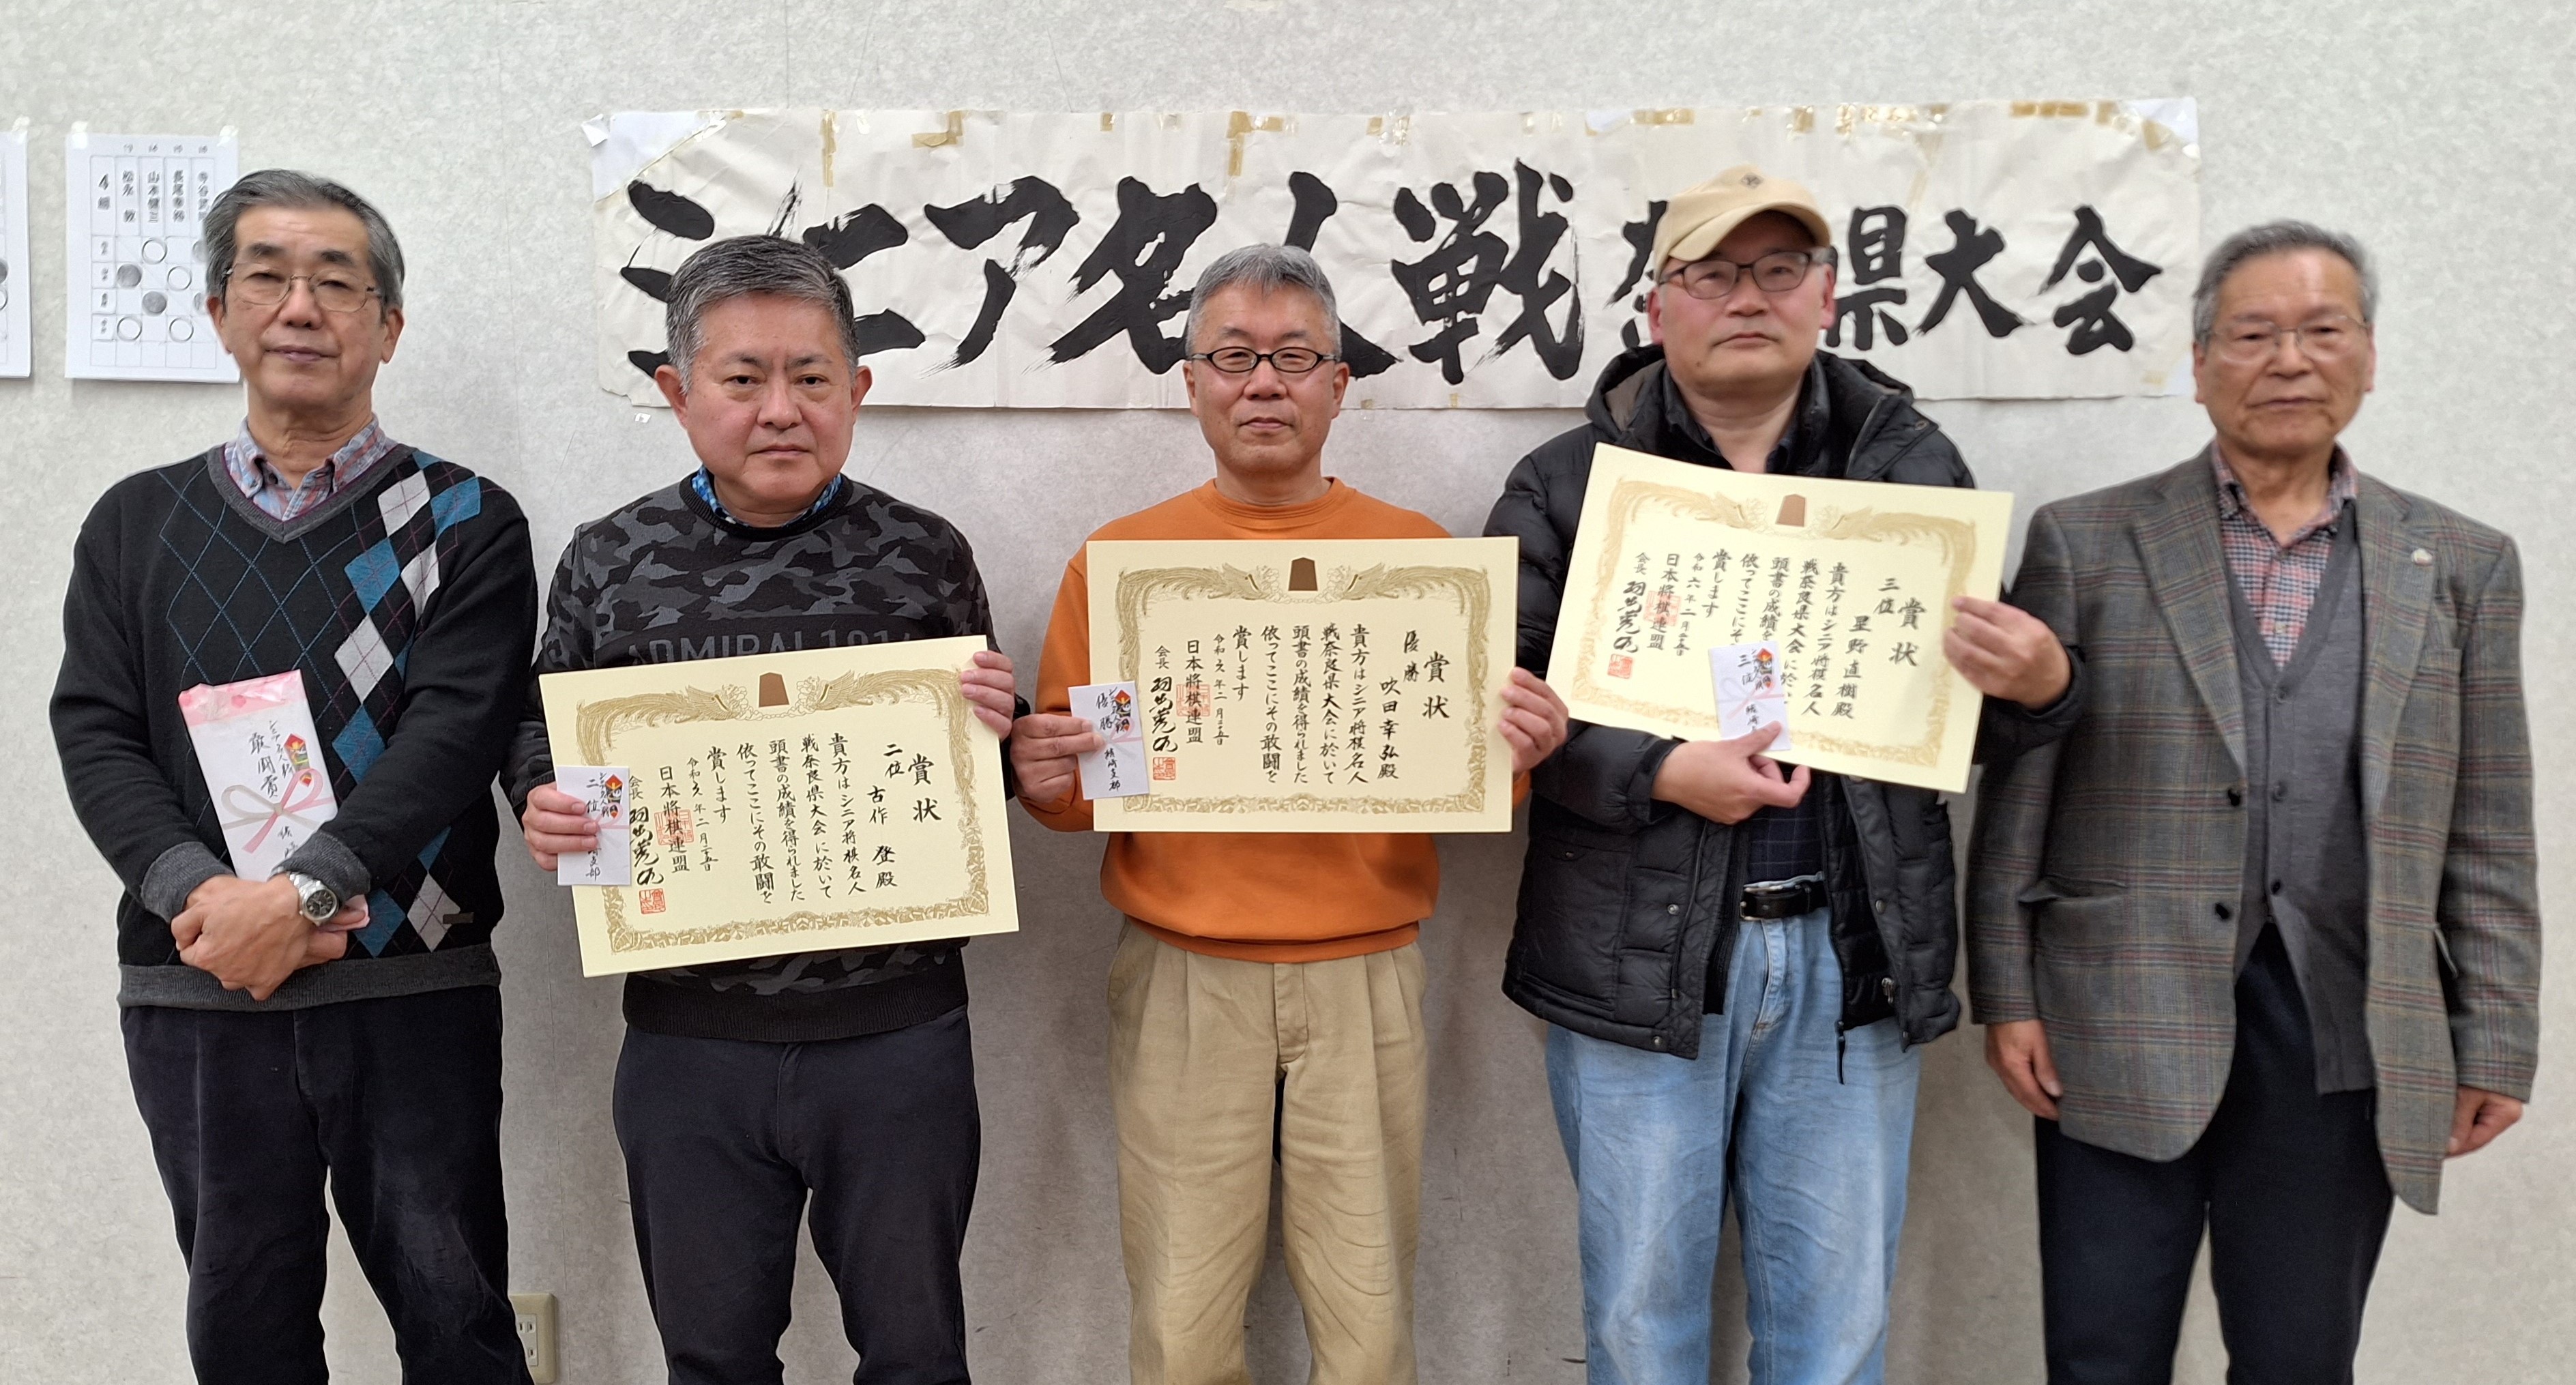 シニア名人戦 奈県大会
4組
17 18 19 20
松永 敦
山本健三
長尾幸裕
ADMIRAL 191
敢闘賞
賞状
二位
古作 登 殿
貴方はシニア将棋名人
戦奈良県大会に於いて
頭書の成績を得られました
依ってここにその敢闘を
賞します
令和六年二月二十五日
日本将棋連盟
会長 羽生善治
二位
支部
賞状
優勝
吹田幸弘殿
貴方はシニア将棋名人
戦奈良県大会に於いて
頭書の成績を得られました
依ってここにその敢闘を
賞します
令和六年二月二十五日
日本将棋連盟
会長 羽生善治
優勝
支部
賞状
三位
星野直樹殿
貴方はシニア将棋名人
戦奈良県大会に於い
頭書の成績を
依ってここにそ
賞します
令和六年二月二十五日
日本将棋連盟
会長 羽生善治
三位